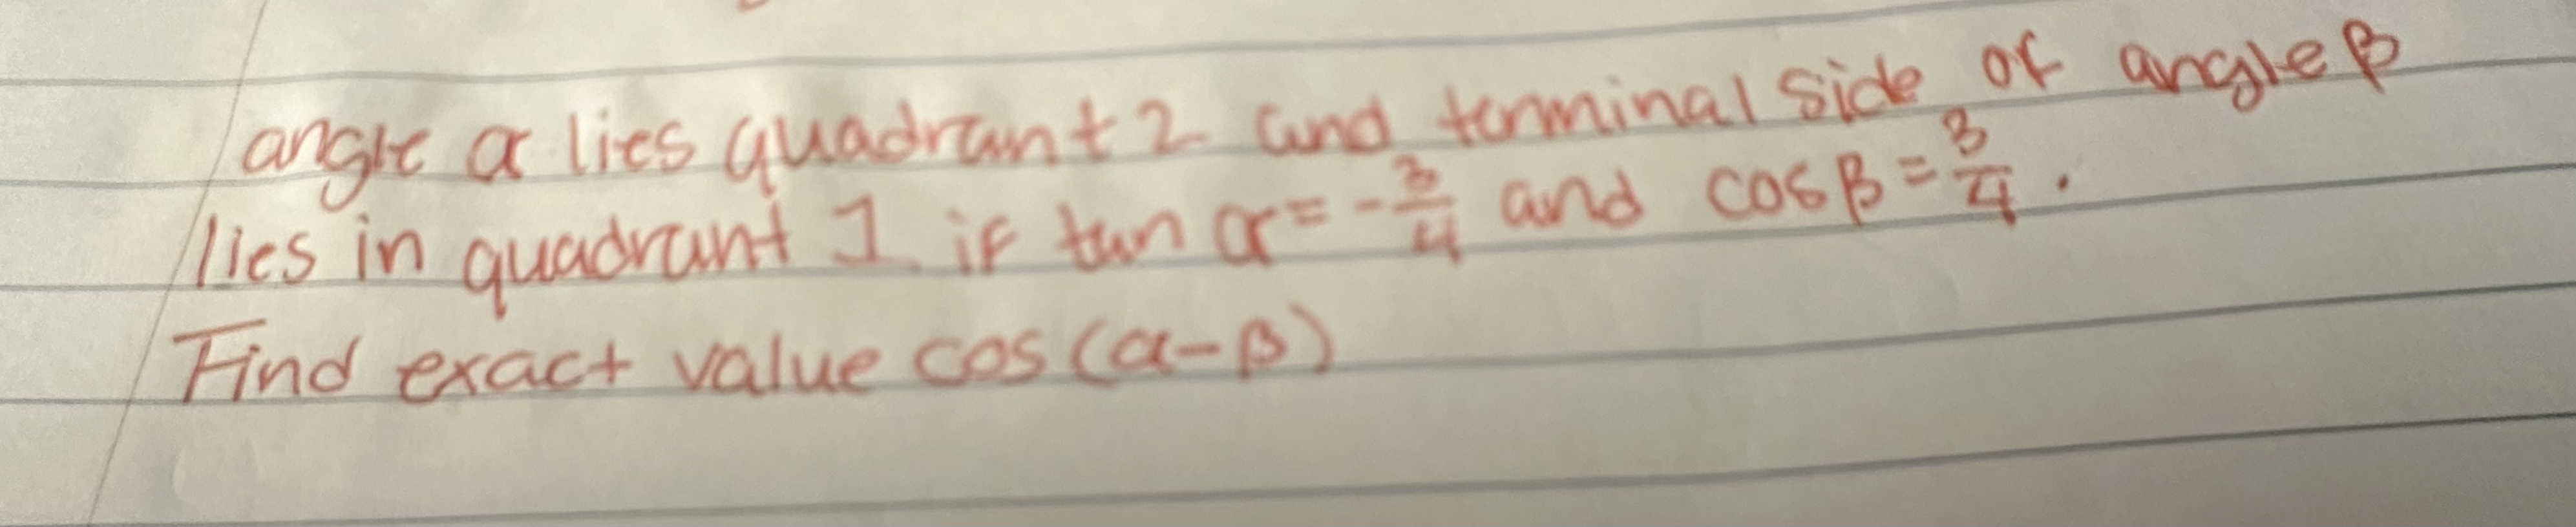 angle α lies quadrant 2 and terminal side of angle β
lies in quadrant 1 if tan α = -3/4 and cos β = 3/4.
Find exact value cos (α-β)